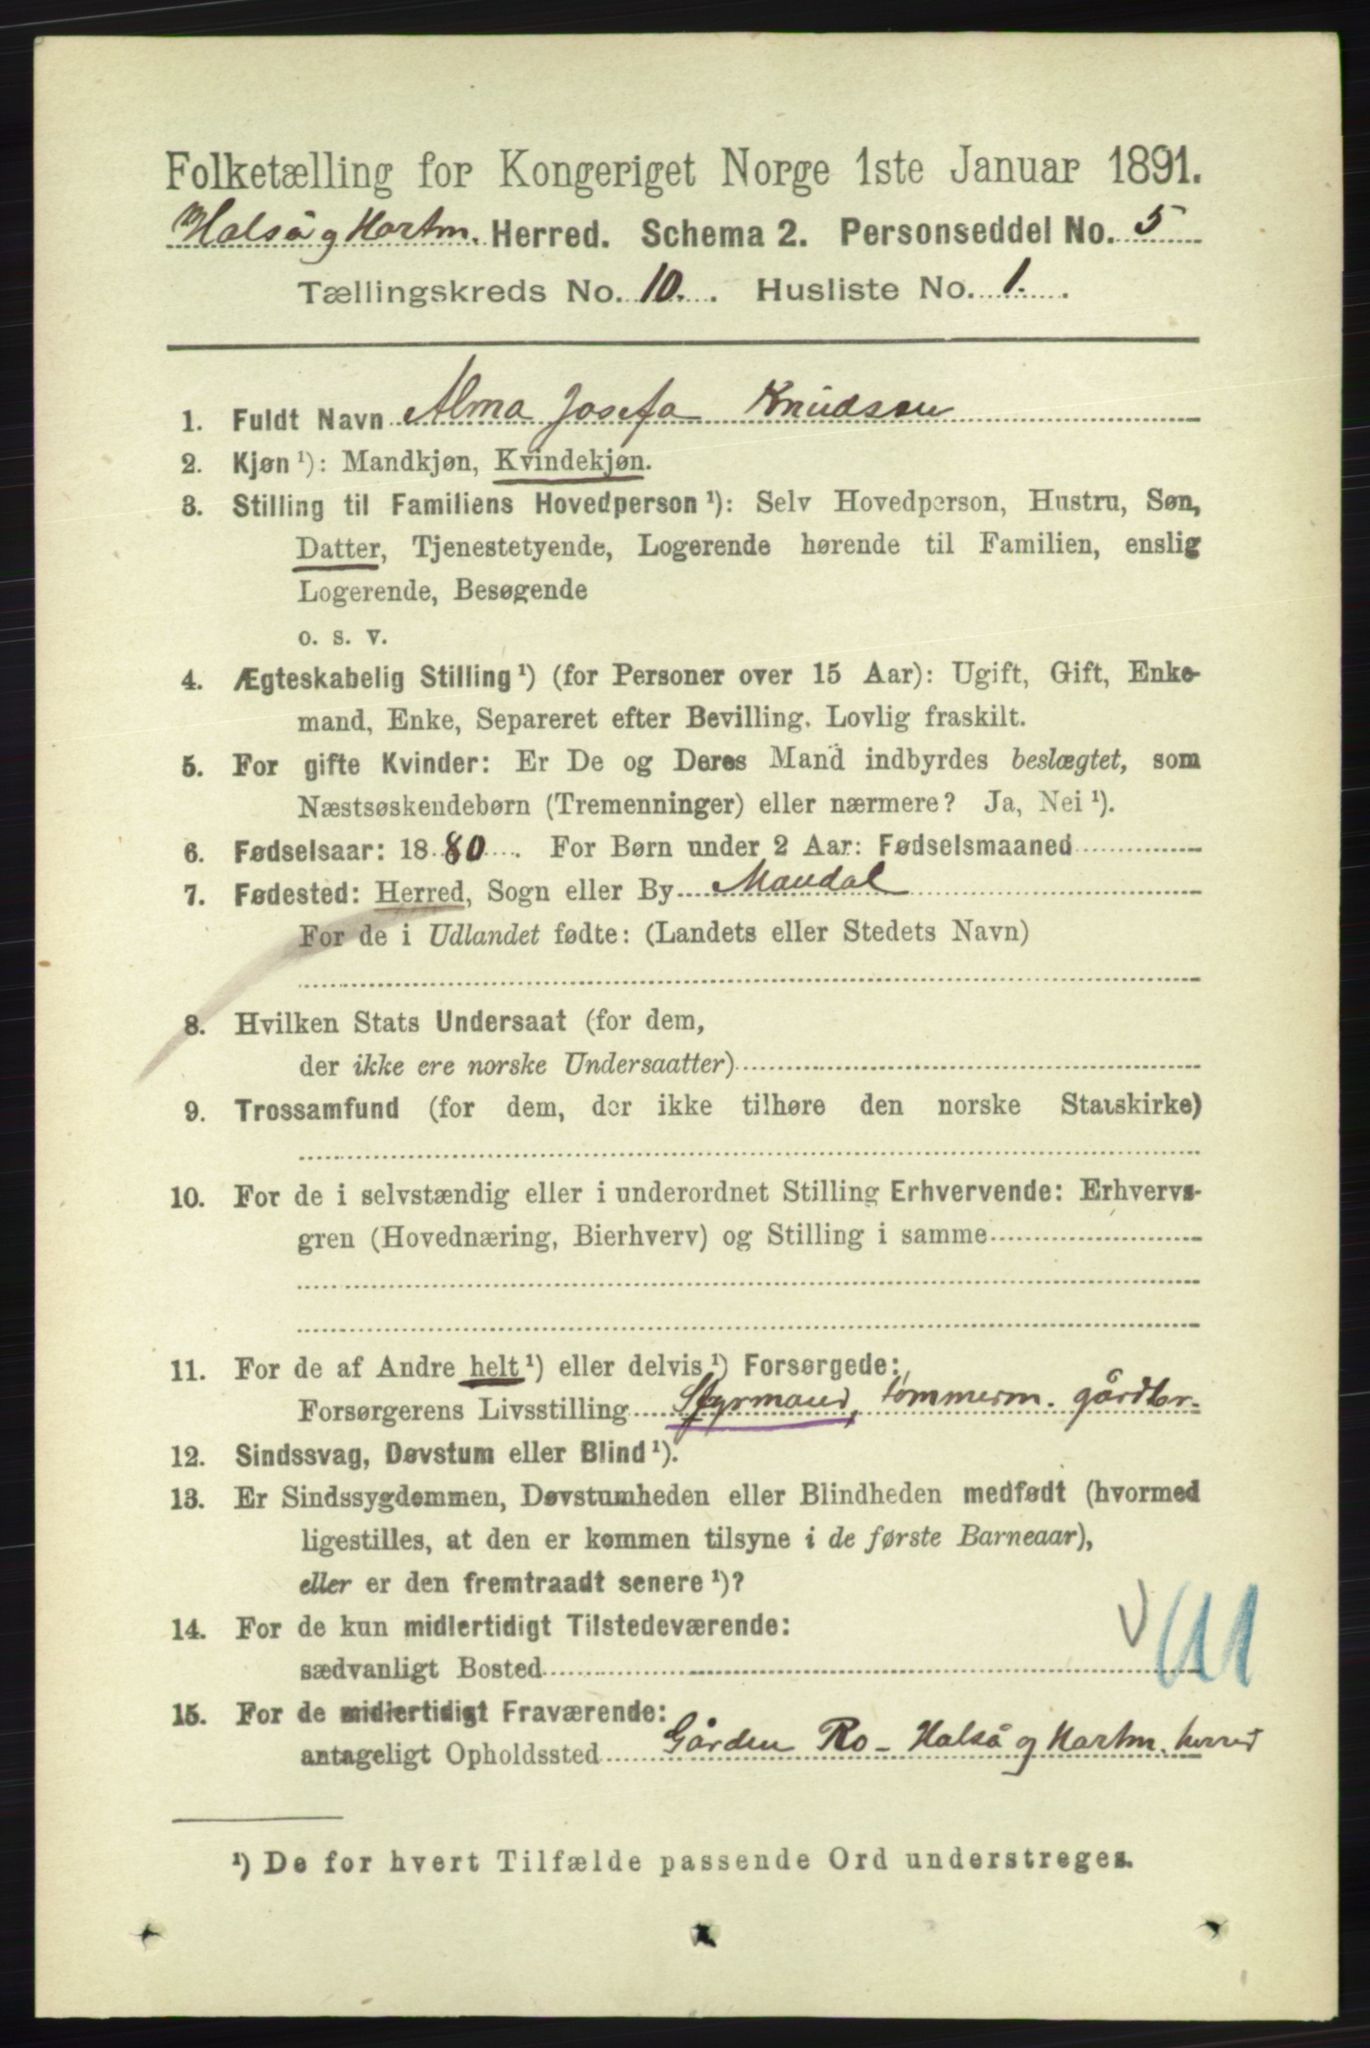 Folketælling for Kongeriget Norge 1ste Januar 1891.
Halså og Hartm. Herred. Schema 2. Personseddel No. 5
Tællingskreds No. 10. Husliste No. 1.
1. Fuldt Navn Alma Josefa Knudsen
2. Kjøn ¹): Mandkjøn, Kvindekjøn.
3. Stilling til Familiens Hovedperson ¹): Selv Hovedperson, Hustru, Søn,
Datter, Tjenestetyende, Logerende hørende til Familien, enslig
Logerende, Besøgende
o. s. v.
4. Ægteskabelig Stilling ¹) (for Personer over 15 Aar): Ugift, Gift, Enke-
mand, Enke, Separeret efter Bevilling. Lovlig fraskilt.
5. For gifte Kvinder: Er De og Deres Mand indbyrdes beslægtet, som
Næstsøskendebørn (Tremenninger) eller nærmere? Ja, Nei ¹).
6. Fødselsaar: 1880. For Børn under 2 Aar: Fødselsmaaned
7. Fødested: Herred, Sogn eller By Mandal
For de i Udlandet fødte: (Landets eller Stedets Navn)
8. Hvilken Stats Undersaat (for dem,
der ikke ere norske Undersaatter)
9. Trossamfund (for dem, der ikke tilhøre den norske Statskirke)
10. For de i selvstændig eller i underordnet Stilling Erhvervende: Erhvervs-
gren (Hovednæring, Bierhverv) og Stilling i samme
11. For de af Andre helt ¹) eller delvis ¹) Forsørgede:
Forsørgerens Livsstilling Styrmand, tømmerm. gårdbr.
12. Sindssvag, Døvstum eller Blind ¹).
13. Er Sindssygdommen, Døvstumheden eller Blindheden medfødt (hvormed
ligestilles, at den er kommen tilsyne i de første Barneaar),
eller er den fremtraadt senere ¹)?
14. For de kun midlertidigt Tilstedeværende:
sædvanligt Bosted
15. For de midlertidigt Fraværende:
antageligt Opholdssted Gården Ro - Halså og Hartm. herred
¹) De for hvert Tilfælde passende Ord understreges.